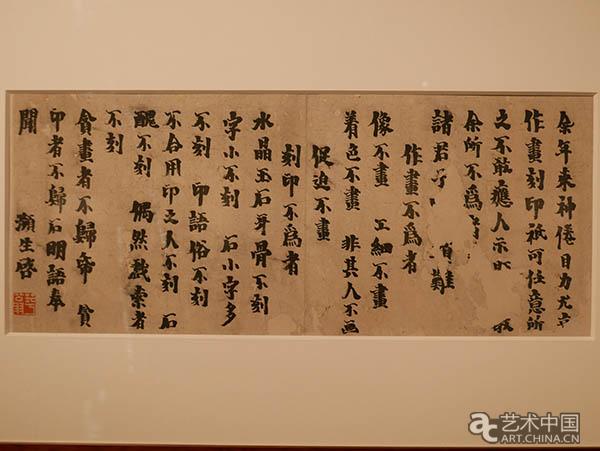 余年來神倦目力尤
作畫刻印祇可任意所
之不敢應人示
余所不爲
諸君子 難
作畫不爲者
像不畫 工細不畫
着色不畫 非其人不画
促迫不畫
刻印不爲者
水晶玉石牙骨不刻
字小不刻 石小字多
不刻 印語俗不刻
不合用印之人不刻 石
醜不刻 偶然戲索者
不刻
貪畫者不歸帋 貪
印者不歸石明語奉
聞 瀕生啓
艺术中国
ART.CHINA.CN